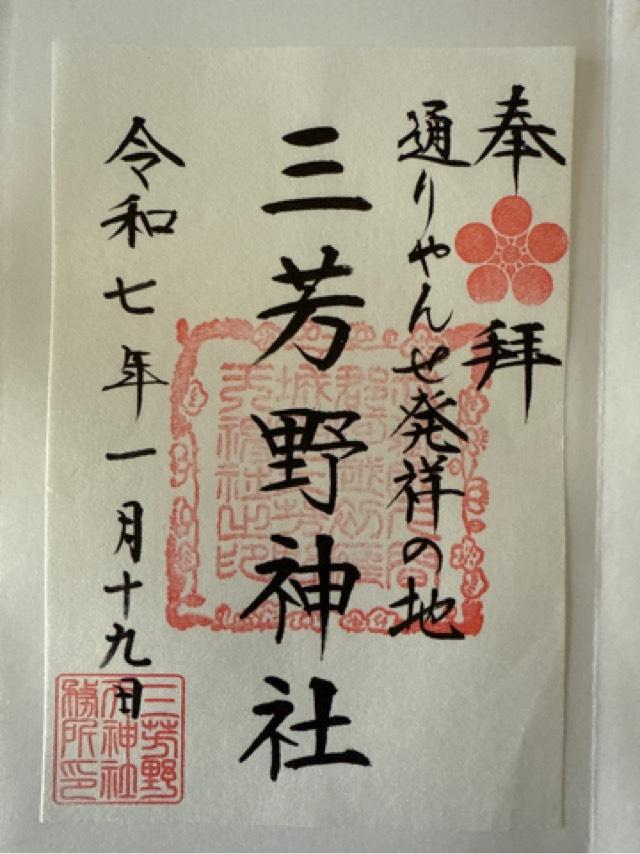 奉拝
通りゃんせ発祥の地
三芳野神社
令和七年一月十九日
三芳野
天神社
務所印